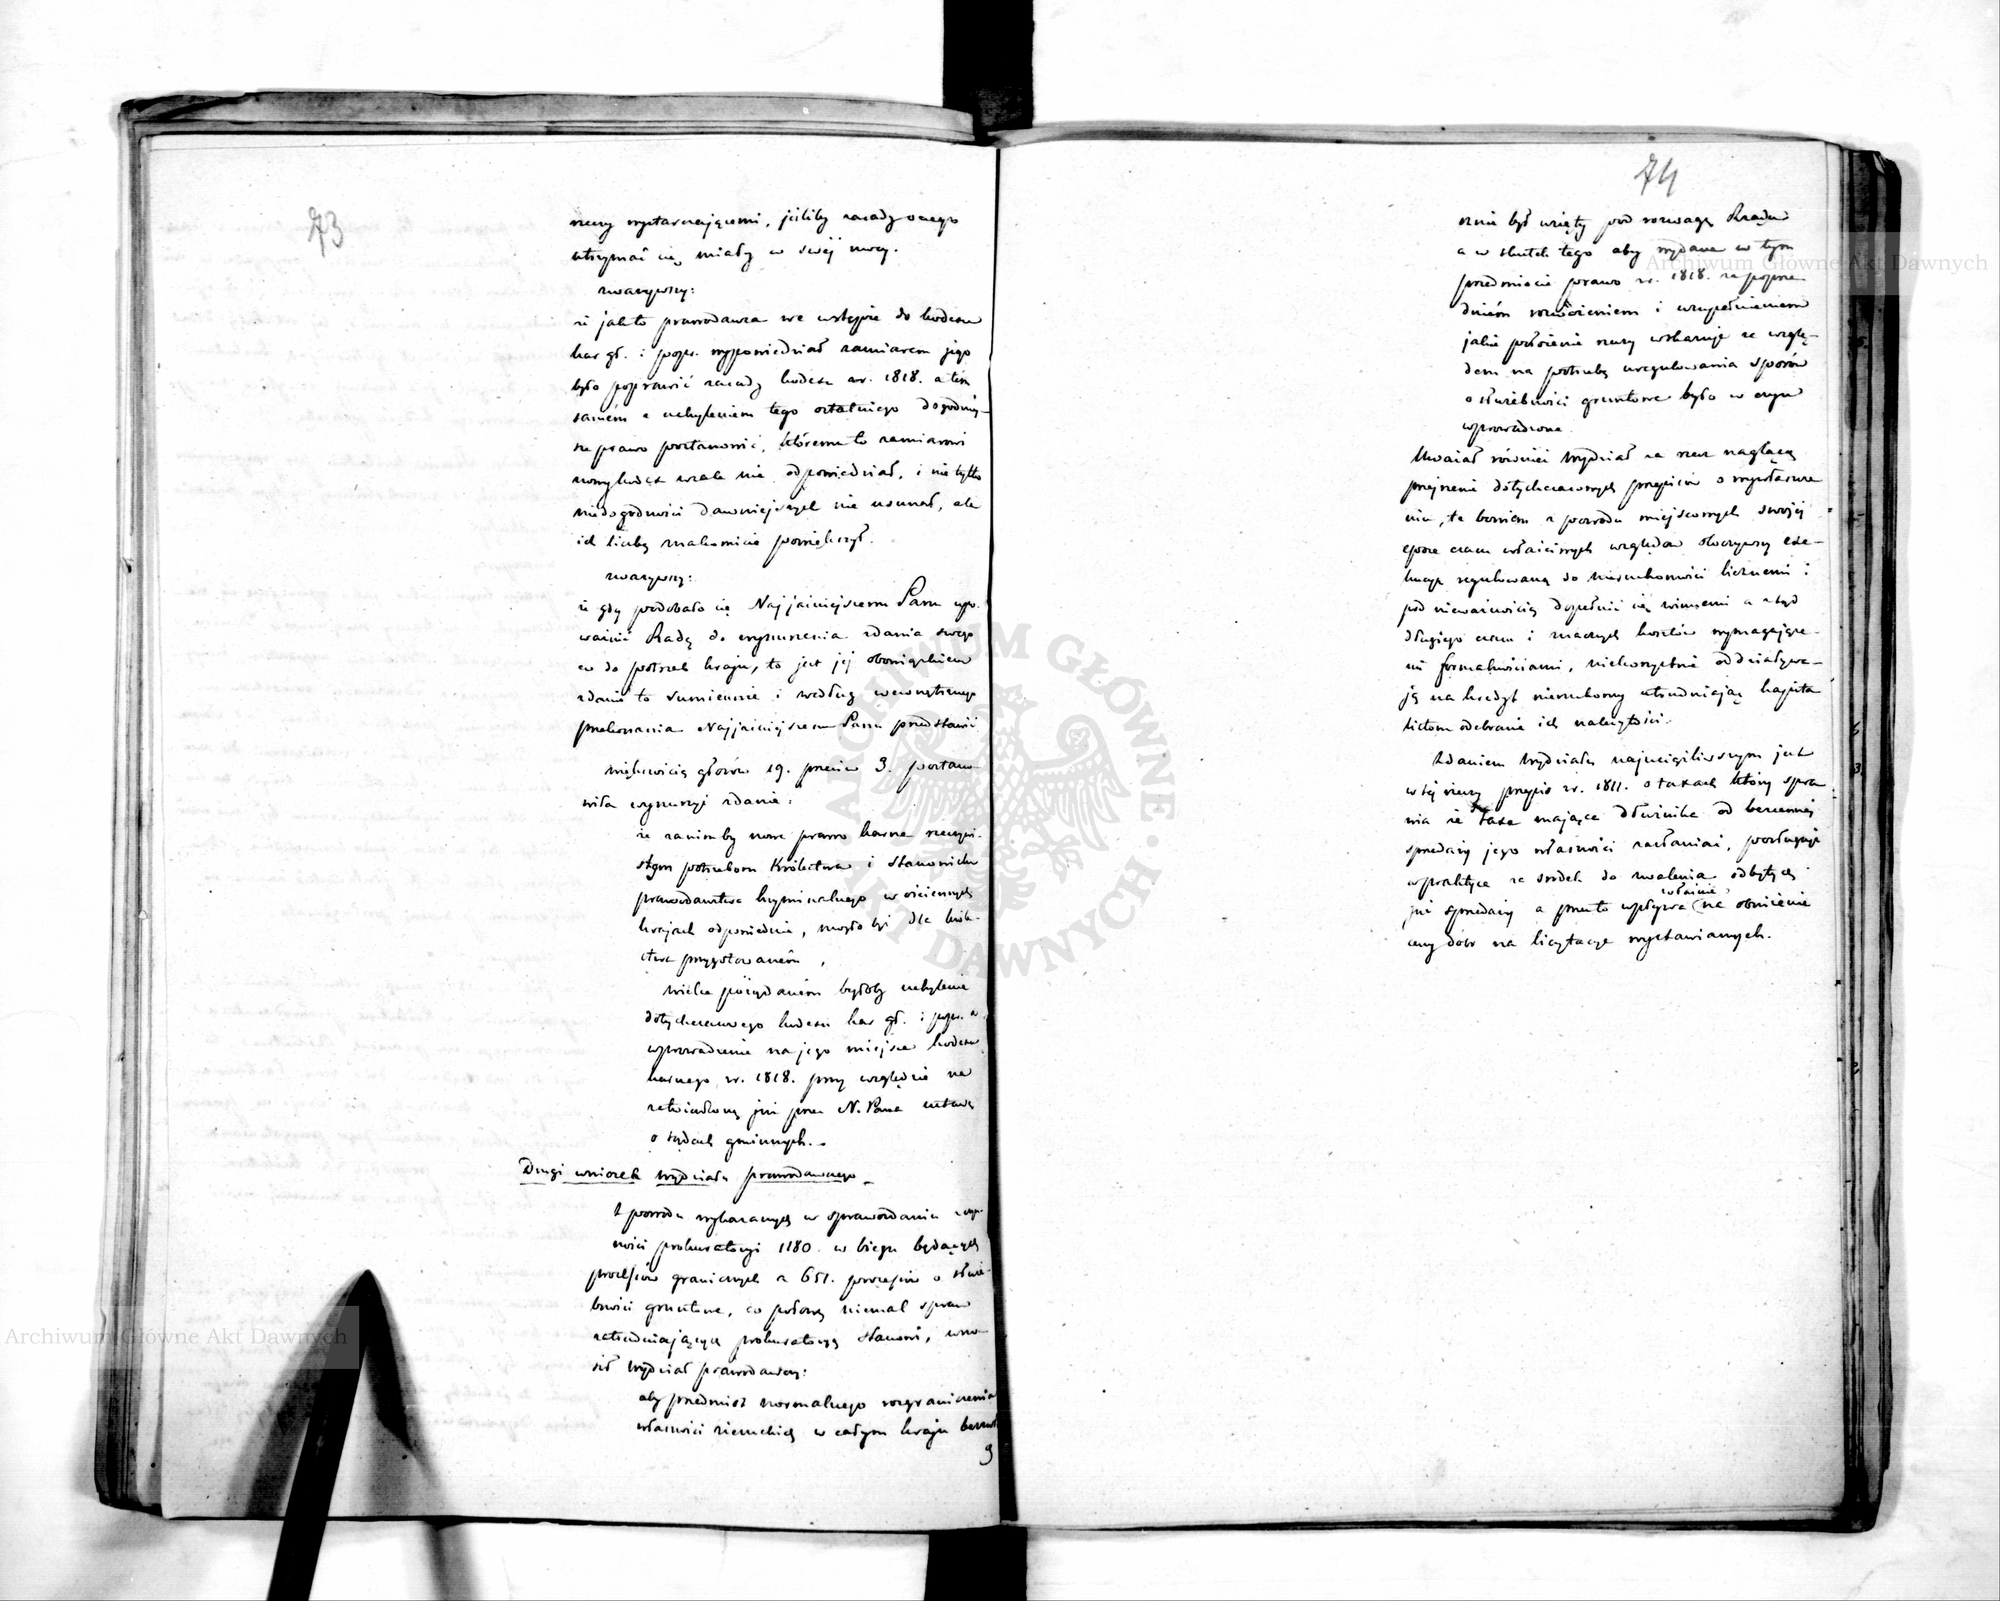 73
rzeczy wystarczającemi, jeśliby zasady onego
utrzymać się miały w swéj mocy.
zważywszy:
że jak to prawodawca we wstępie do kodexu
kar gł. i popr. wypowiedział zamiarem jego
było poprawić zasady kodexu z r. 1818. a tém
samém z uchyleniem tego ostatniego dogodniej-
sze prawo postanowić, któremu to zamiarowi
nowy kodex wcale nie odpowiedział, i nie tylko
niedogodności dawniejszych nie usunął, ale
ich liczbę znakomicie powiększył.
zważywszy:
że gdy podobało się Najjaśniejszemu Panu upo-
ważnić Radę do wynurzenia zdania swego
co do potrzeb kraju, to jest jej obowiązkiem
zdanie to sumiennie i według wewnętrznego
przekonania Najjaśniejszemu Panu przedstawić
większością głosów 19. przeciw 3. postano-
wiła wynurzyć zdanie:
że zanimby nowe prawo karne rzeczywi-
stym potrzebom Królestwa i stanowisku
prawodawstwa kryminalnego w ościennych
krajach odpowiednie, mogło być dla Król-
estwa przygotowaném,
wielce pożądaném byłoby uchylenie
dotychczasowego kodexu kar gł. i popr. a
wprowadzenie na jego miejsce kodexu
karnego z r. 1818. przy względzie na
zatwierdzoną już przez N. Pana ustawę
o sądach gminnych.
Drugi wniosek Wydziału prawodawczego
Z powodu wykazanych w sprawozdaniu z czyn-
ności prokuratoryi 1180. w biegu będących
procesów granicznych a 651. procesów o służe-
bności gruntowe, co połowę niemal spraw
zatrudniających prokuratoryą stanowi, wno-
sił Wydział prawodawczy:
aby przedmiot normalnego rozgraniczenia
własności ziemskiéj w całym kraju bezzwł
9
74
cznie był wzięty pod rozwagę Rządu
a w skutek tego aby wydane w tym
przedmiocie prawo z r. 1818. za poprze-
dniém rozważeniem i uzupełnieniem
jakie położenie rzeczy wskazuje ze wzglę-
dem na potrzebę uregulowania sporów
o służebności gruntowe było w czyn
wprowadzone.
Uważał również Wydział za rzecz naglącą
przejrzenie dotychczasowych przepisów o wywłaszcze-
niu, te bowiem z powodu miejscowych swojéj
epoce czasu właściwych względów otoczywszy exe-
kucyę regulowaną do nieruchomości licznemi i
pod nieważnością dopełnić się winnemi a ztąd
długiego czasu i znacznych kosztów wymagające-
mi formalnościami, niekorzystnie oddziaływa-
ją na kredyt nieruchomy utrudniając kapita-
listom odebranie ich należytości.
Zdaniem Wydziału najuciążliwszym jest
w téj rzeczy przepis z r. 1811. o taxach który spra-
wia że taxa mająca dłużnika od bezcennéj
sprzedaży jego własności zasłaniać, posługuje
w praktyce za środek do zwalenia odbytéj
już sprzedaży a przeto wpływa właśnie na obniżenie
ceny dóbr na licytacye wystawianych.
Archiwum Główne Akt Dawnych
Archiwum Główne Akt Dawnych
ARCHIWUM GŁÓWNE
AKT DAWNYCH